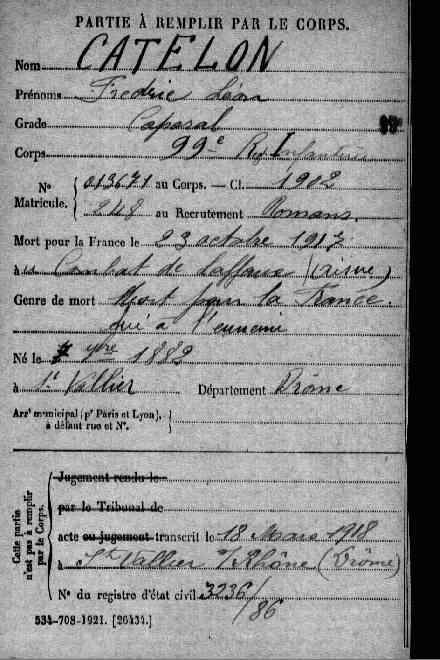 PARTIE À REMPLIR PAR LE CORPS.
Nom CATELON
Prénoms Frédéric Léon
Grade Caporal
Corps 99e Rég Infanterie
No Matricule. 013671 au Corps. — Cl. 1902
248 au Recrutement Romans.
Mort pour la France le 23 octobre 1917
à au Combat de Laffaux (Aisne)
Genre de mort Mort pour la France.
tué à l'ennemi
Né le 7 7bre 1882
à St Vallier Département Drôme
Arrt municipal (pr Paris et Lyon),
à défaut rue et No.
Cette partie n'est pas à remplir par le Corps.
Jugement rendu le
par le Tribunal de
acte ou jugement transcrit le 18 Mars 1918
à St Vallier s/Rhône (Drôme)
No du registre d'état civil 3236/86
534-708-1921. [26434.]